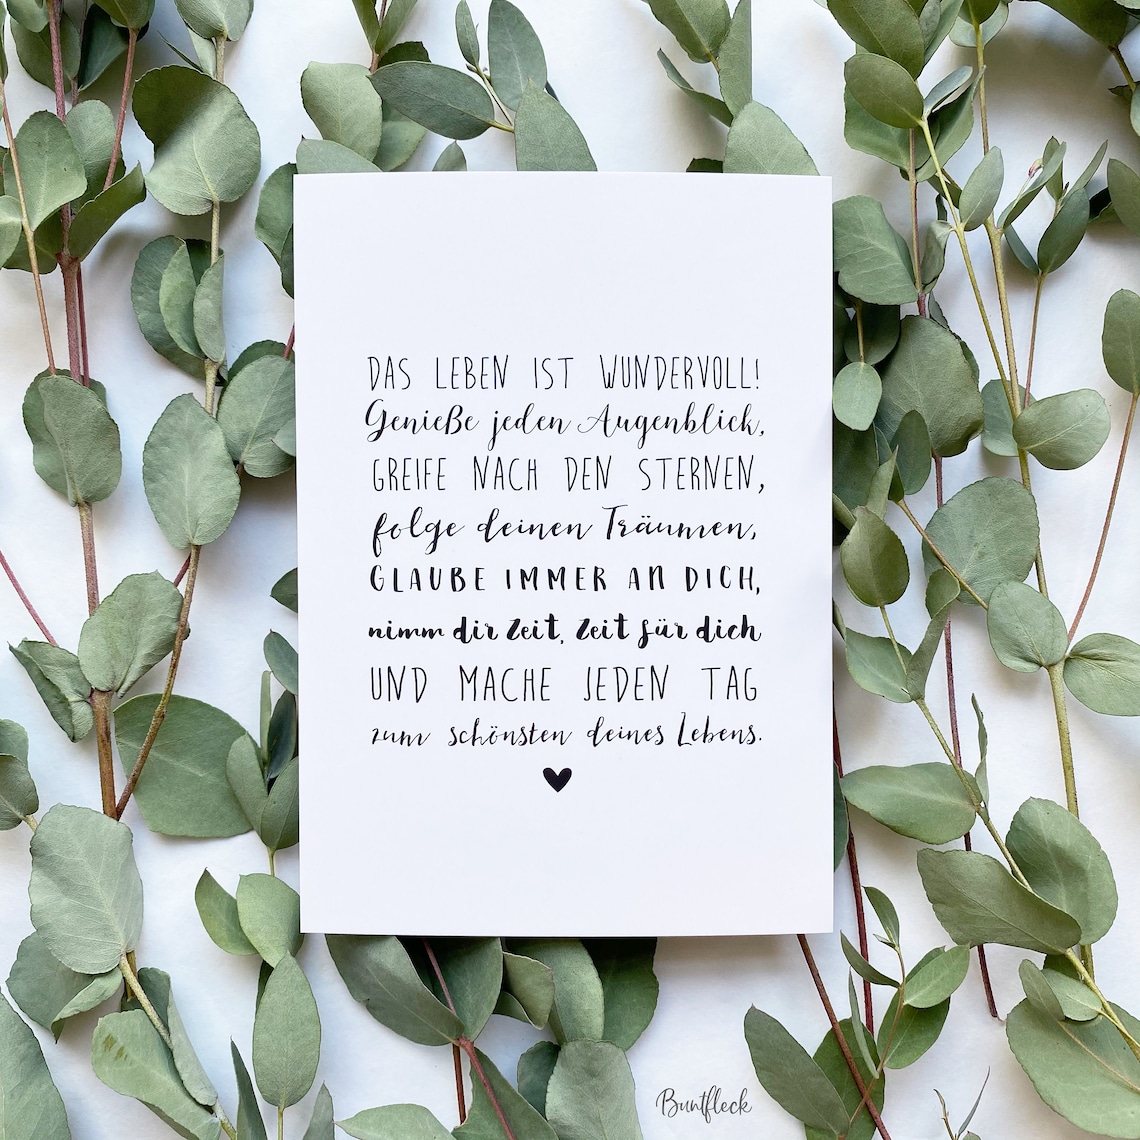 DAS LEBEN IST WUNDERVOLL!
Genieße jeden Augenblick,
GREIFE NACH DEN STERNEN,
folge deinen Träumen,
GLAUBE IMMER AN DICH,
nimm dir Zeit, Zeit für dich
UND MACHE JEDEN TAG
zum schönsten deines Lebens.
Buntfleck